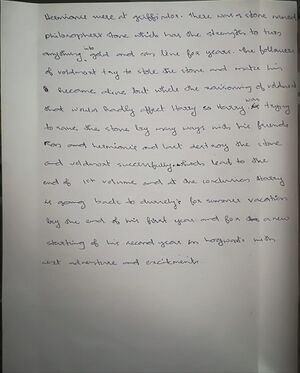 Hermione were at griffindor. There was a stone named
philosophers stone which has the strength to turn
anything into gold and can live for years. The followers
of voldmort try to stole the stone and make him
become alive but while the of voldmort
that would badly affect Harry so Harry was trying
to save the stone by many ways with his friends
Ron and hermionie and last destroy the stone
and voldmort successfully which lead to the
end of 1st volume and at the conclusion Harry
is going back to dursely's for summer vacation
by the end of his first year and for a new
starting of his second year in hogwarts with
next adventure and excitments.